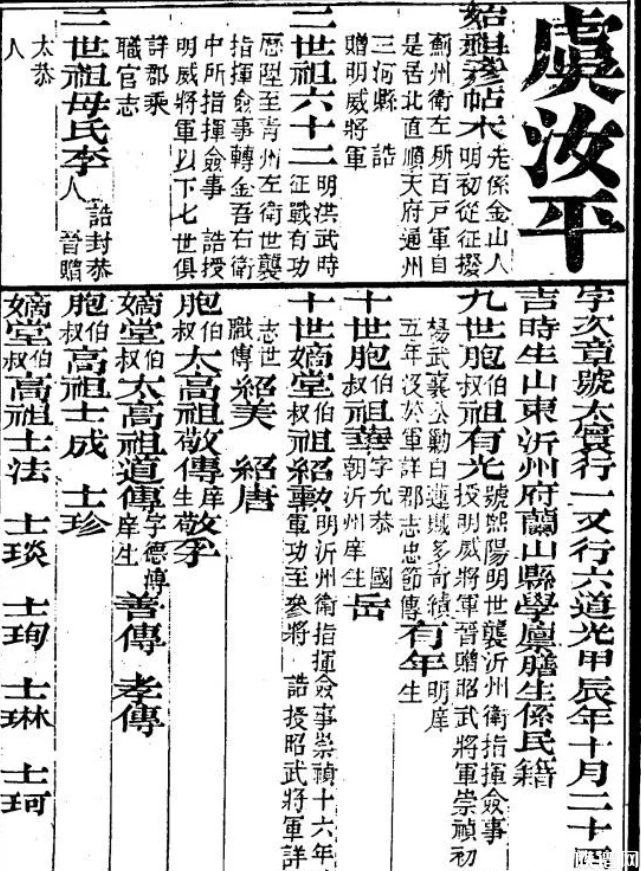 虞汝平
字次章號太寰行一又行六道光甲辰年十月二十
吉時生山東沂州府蘭山縣學廩膳生係民籍
始祖參帖木先係金山人
明初從征撥
薊州衛左所百戶軍自
是居北直順天府通州
三河縣 誥
贈明威將軍
二世祖六十二明洪武時
征戰有功
歷陞至青州左衛世襲
指揮僉事轉金吾右衛
中所指揮僉事 誥授
明威將軍以下七世俱
詳郡乘
職官志
二世祖母氏李誥封恭
人 晉贈
太恭
人
九世胞伯叔祖有光號熙陽明世襲沂州衛指揮僉事
授明威將軍晉贈昭武將軍崇禎初
楊武襄公勦白蓮賊多奇績
五年沒於軍詳郡志忠節傳有年明庠
生
十世胞伯叔祖華字允恭 國
朝沂州庠生岳
十世嫡堂伯叔祖紹勳明沂州衛指揮僉事崇禎十六年
軍功至參將 誥授昭武將軍詳
志世
職傳紹美 紹唐
胞伯叔太高祖敬傳庠
生敬孚
嫡堂伯叔太高祖道傳字德溥
庠生善傳 孝傳
胞伯叔高祖士成 士珍
嫡堂伯叔高祖士法 士琰 士珣 士琳 士珂